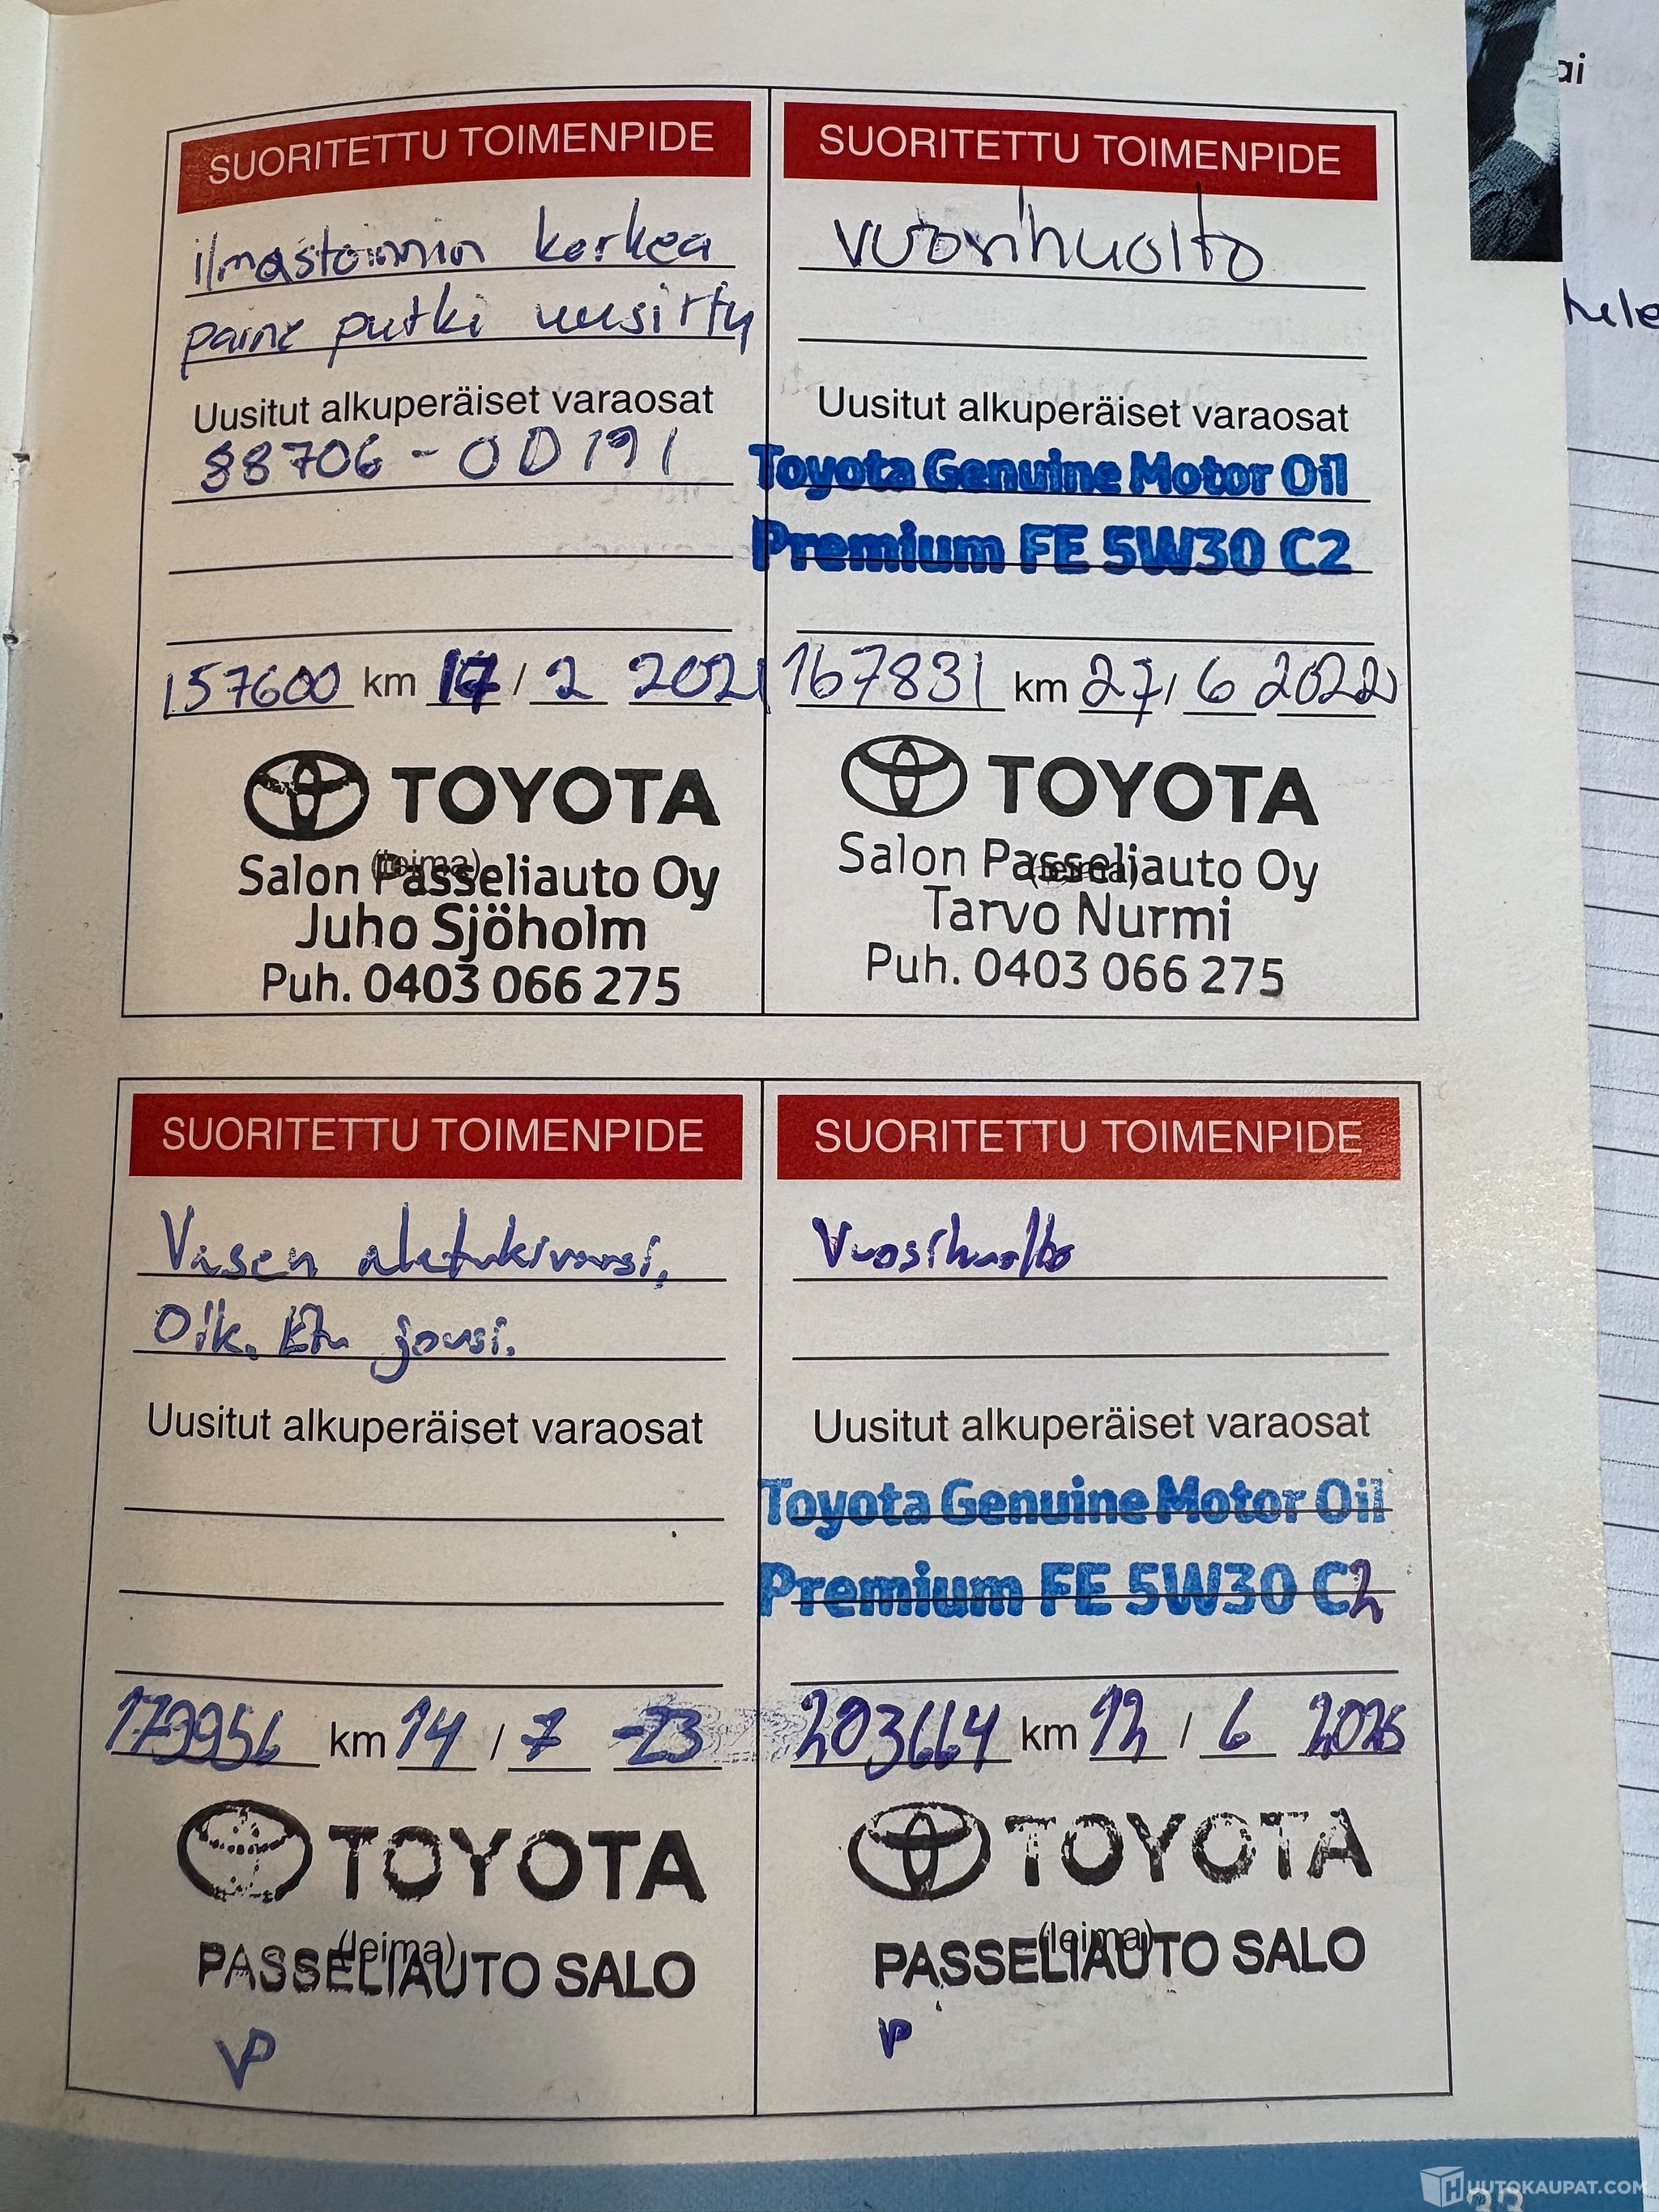 ai
tule
SUORITETTU TOIMENPIDE
ilmastoinnin korkea
paine putki uusittu
Uusitut alkuperäiset varaosat
88706-0D191
157600 km 17 / 2 2021
TOYOTA
(leima)
Salon Passeliauto Oy
Juho Sjöholm
Puh. 0403 066 275
SUORITETTU TOIMENPIDE
vuosihuolto
Uusitut alkuperäiset varaosat
Toyota Genuine Motor Oil
Premium FE 5W30 C2
167831 km 27 / 6 2022
TOYOTA
(leima)
Salon Passeliauto Oy
Tarvo Nurmi
Puh. 0403 066 275
SUORITETTU TOIMENPIDE
Vasen alatukivarsi,
Oik. Etu jousi.
Uusitut alkuperäiset varaosat
179956 km 14 / 7 -23
TOYOTA
(leima)
PASSELIAUTO SALO
VP
SUORITETTU TOIMENPIDE
Vuosihuolto
Uusitut alkuperäiset varaosat
Toyota Genuine Motor Oil
Premium FE 5W30 C2
203664 km 12 / 6 2025
TOYOTA
(leima)
PASSELIAUTO SALO
VP
33
HUUTOKAUPAT.COM